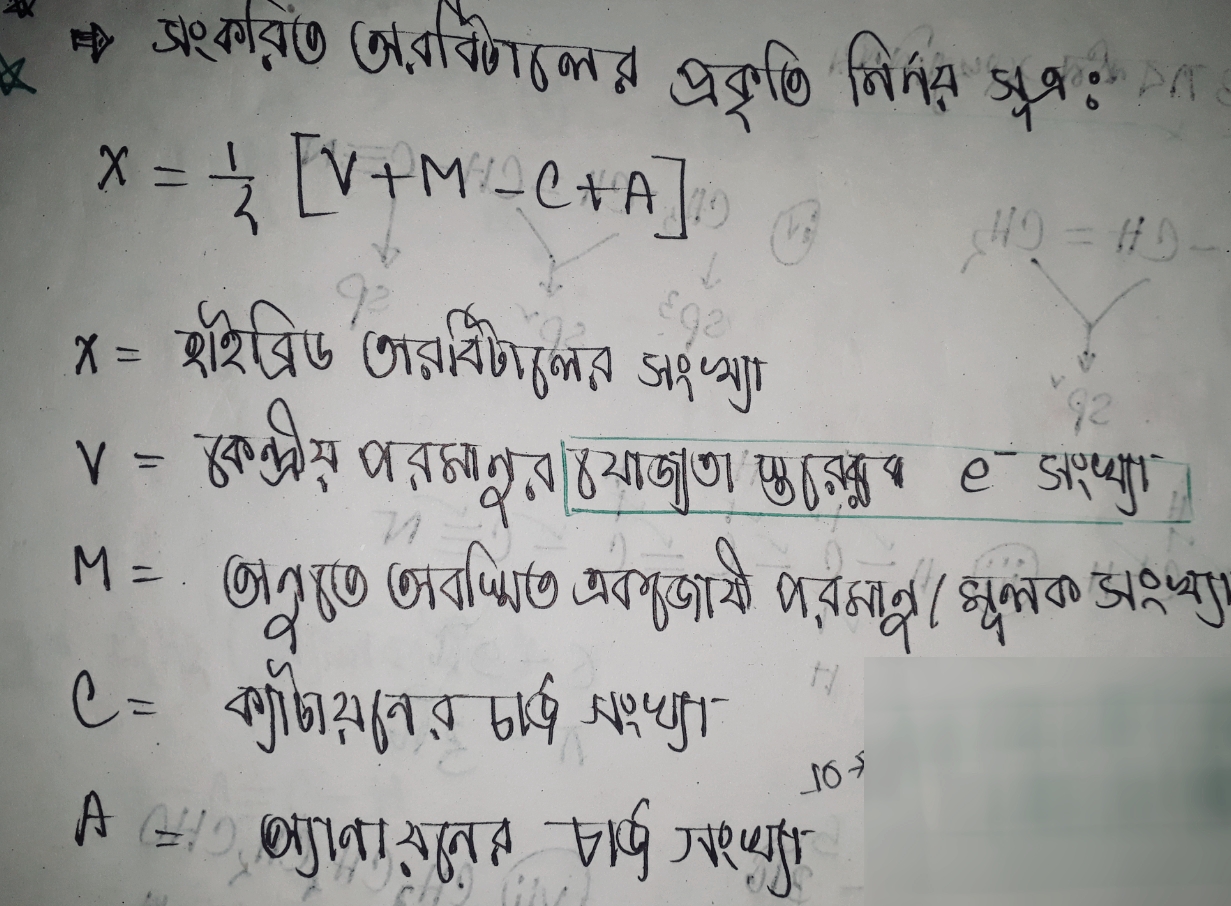 ⇒ সংকরিত অরবিটালের প্রকৃতি নির্ণয় সূত্র:
X = 1/2 [V + M - C + A]
X = হাইব্রিড অরবিটালের সংখ্যা
V = কেন্দ্রীয় পরমানুর যোজ্যতা স্তরের e⁻ সংখ্যা
M = অনুতে অবস্থিত একযোজী পরমানু / মূলক সংখ্যা
C = ক্যাটায়নের চার্জ সংখ্যা
A = অ্যানায়নের চার্জ সংখ্যা